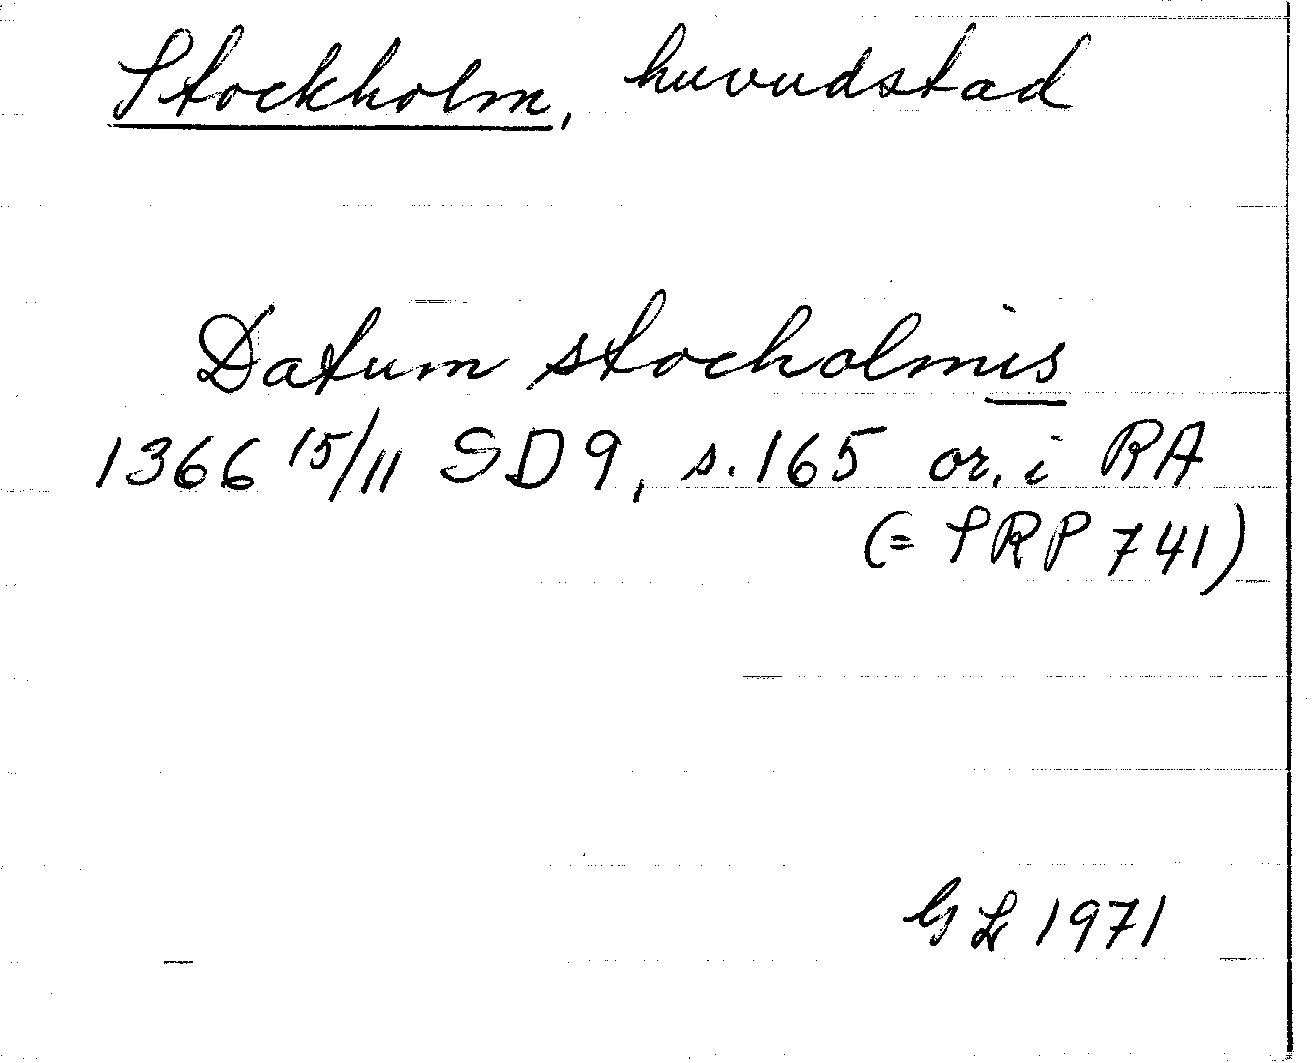 Stockholm, huvudstad
Datum stocholmis
1366 15/11 SD 9, s. 165 or. i RA
(= SRP 741)
GL 1971